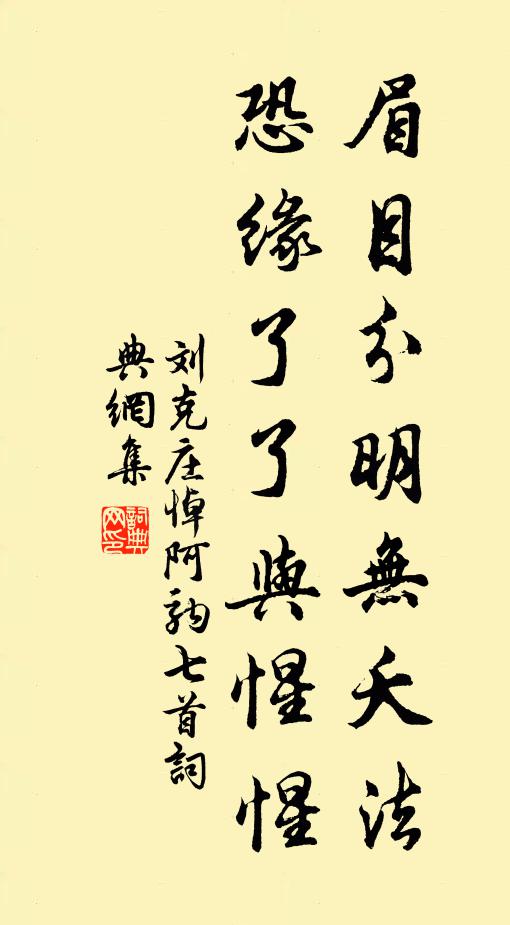 眉目分明無夭法
恐緣了了與惺惺
刘克庄悼阿駒七首詞
典網集
詞典
网印